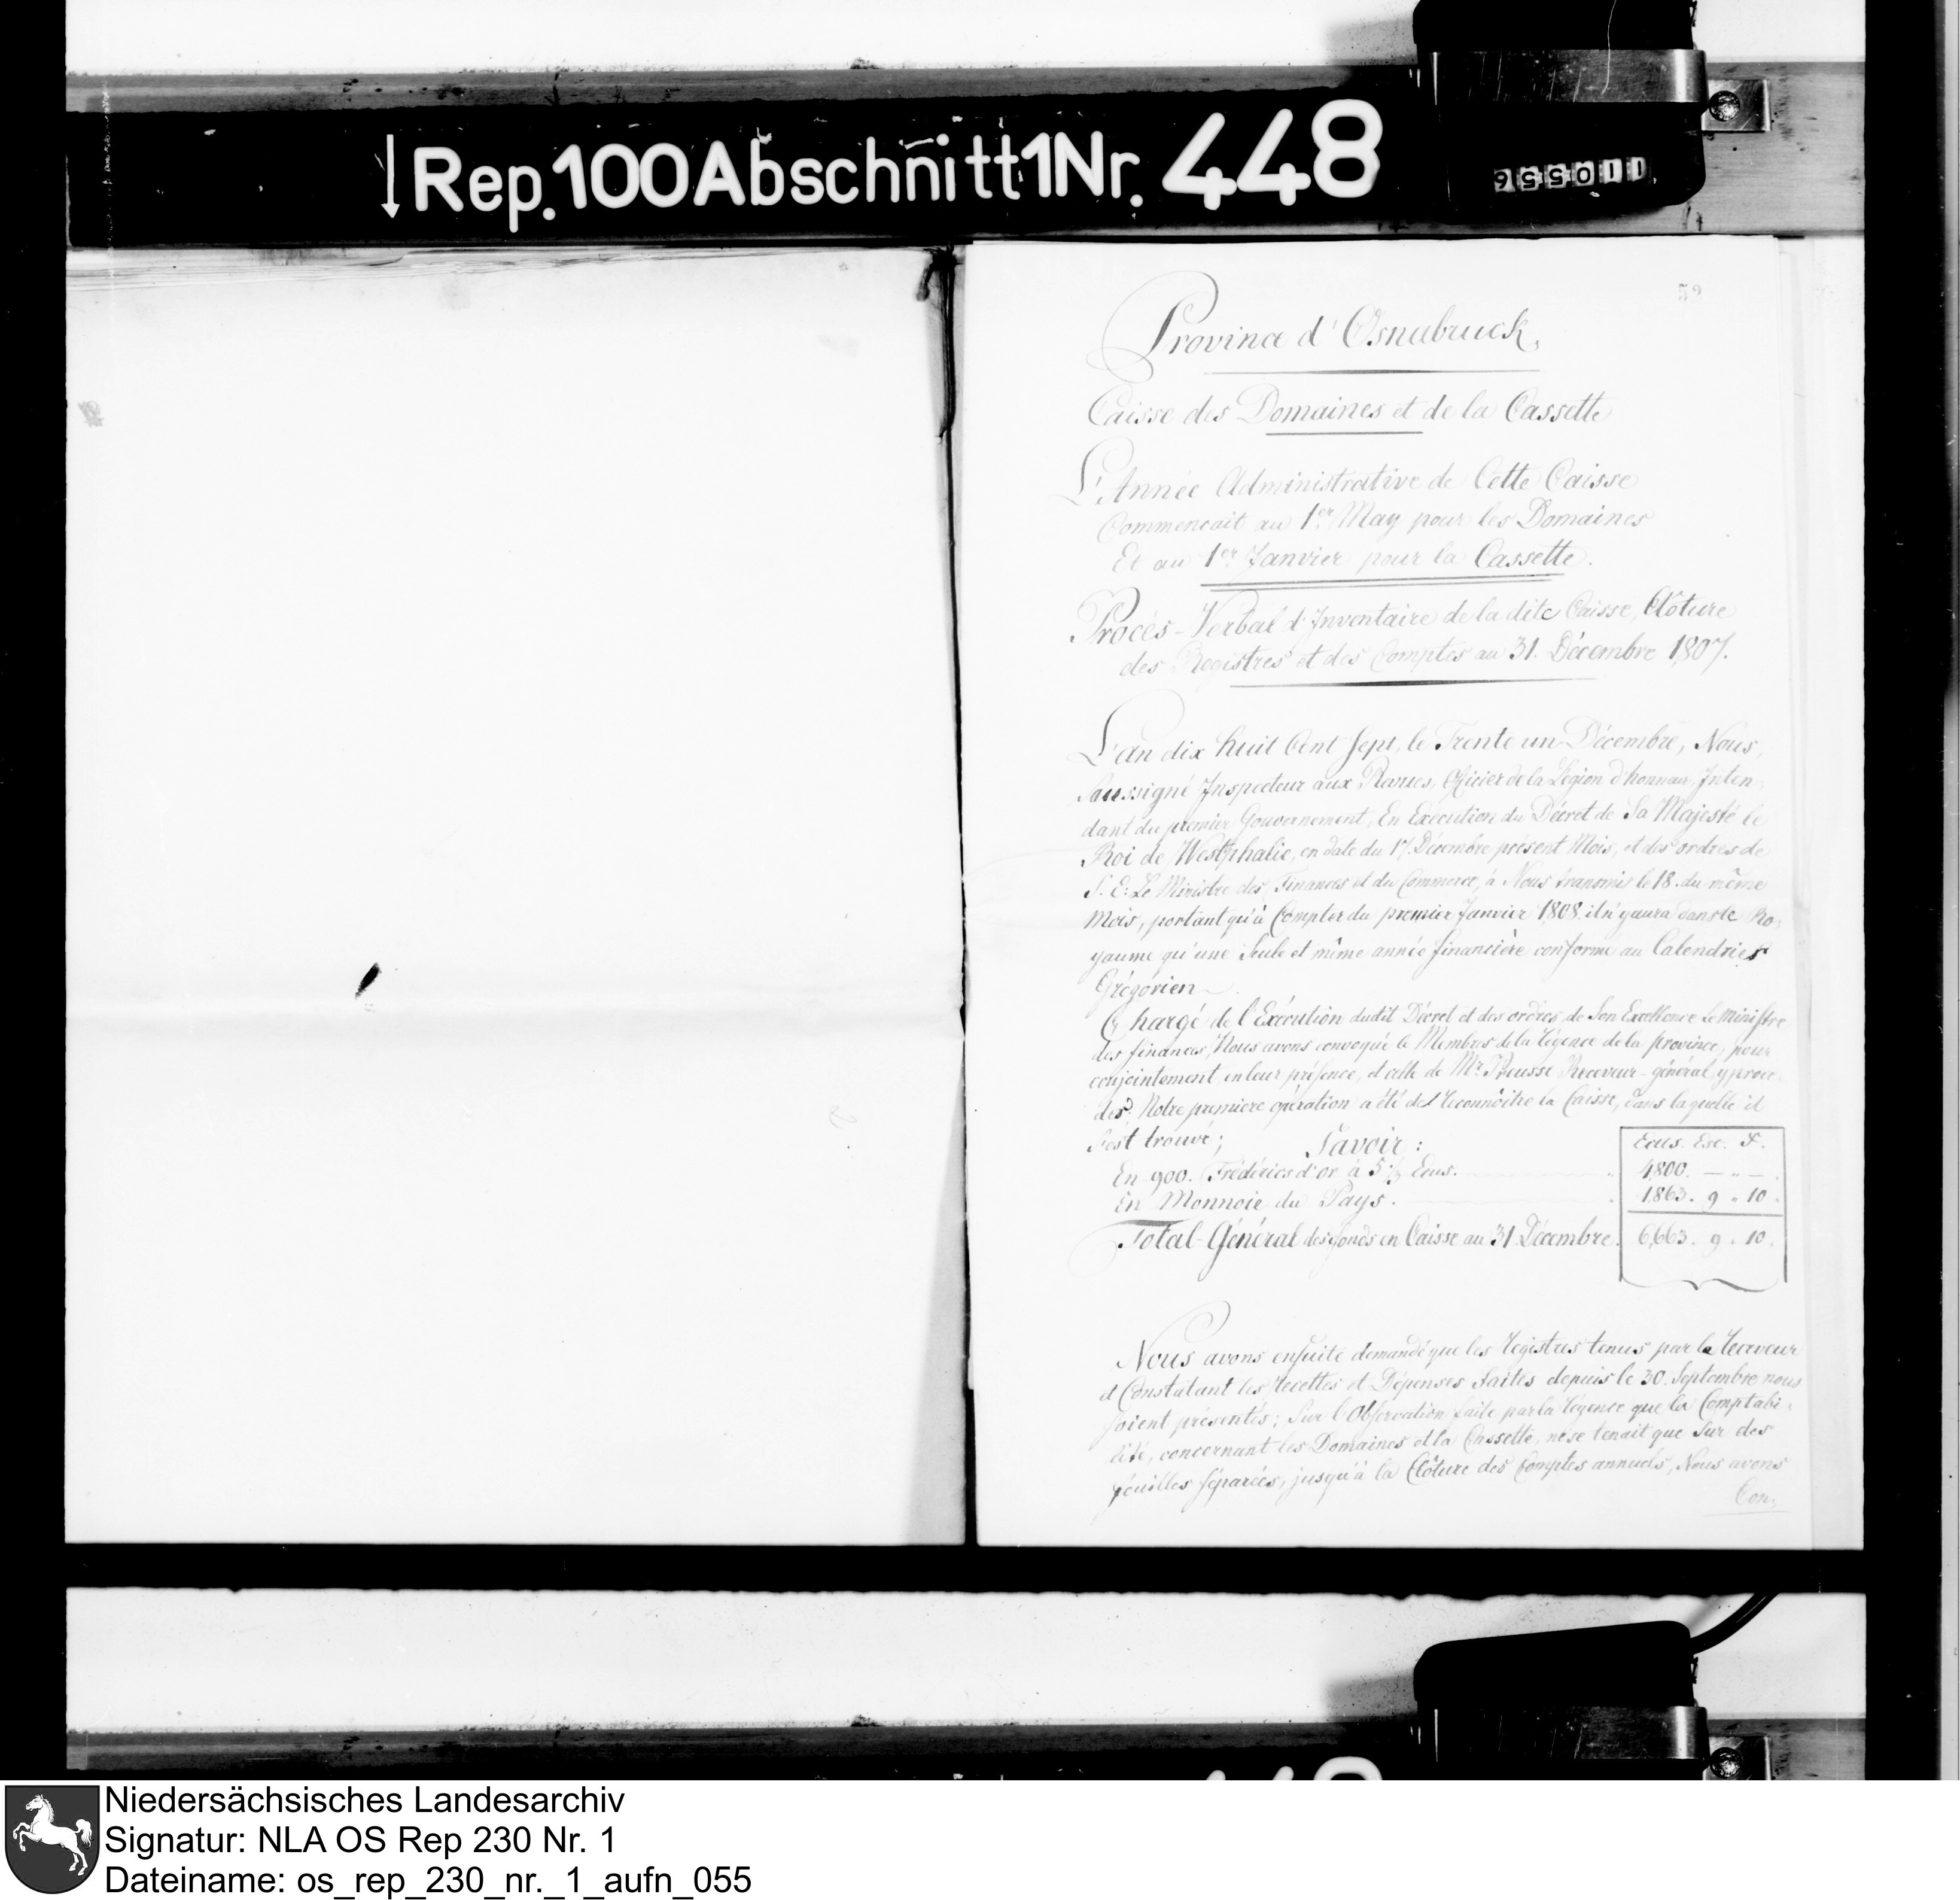 ↓Rep.100Abschnitt1Nr. 448
110556
59
Province d'Osnabruck,
Caisse des Domaines et de la Cassette
L'Année Administrative de Cette Caisse
Commencait au 1er May pour les Domaines
Et au 1er Janvier pour la Cassette.
Procès-Verbal d'Inventaire de la dite Caisse, Clôture
des Registres et des Comptes au 31. Décembre 1807.
L'an dix huit Cent Sept, le Trente un Décembre, Nous,
Soussigné Inspecteur aux Revues, Officier de la Légion d'honneur, Inten-
dant du premier Gouvernement, En Exécution du Décret de Sa Majesté le
Roi de Westphalie, en date du 17. Décembre présent Mois, et des ordres de
S. E: Le Ministre des Finances et du Commerce, à Nous transmis le 18. du même
Mois, portant qu'à Compter du premier Janvier 1808. il n'y aura dans le Ro-
yaume qu'une Seule et même année financière conforme au Calendrier
Grégorien
Chargé de l'Exécution dudit Décret et des ordres de Son Excellence Le Ministre
des finances, Nous avons convoqué le Membres de la régence de la province, pour
conjointement en leur présence, et celle de Mr. Receveur-général, y procé-
der. Notre premiere opération a été de reconnoitre la Caisse, dans laquelle il
s'est trouvé; Savoir:
Ecus. Esc. F.
En 900. Frédérics d'or à 5⅓ Ecus. 4800. — „ —
En Monnoie du Pays. 1863. 9 „ 10.
Total-Général des fonds en Caisse au 31 Décembre. 6,663. 9. 10.
Nous avons ensuite demandé que les registres tenus par le receveur
et Constatant les recettes et Dépenses faites depuis le 30. Septembre nous
soient présentés; Sur l'Observation faite par la régence que la Comptabi-
lité, concernant les Domaines et la Cassette, ne se tenait que Sur des
feuilles séparées, jusqu'à la Clôture des Comptes annuels, Nous avons
Con-
Niedersächsisches Landesarchiv
Signatur: NLA OS Rep 230 Nr. 1
Dateiname: os_rep_230_nr._1_aufn_055